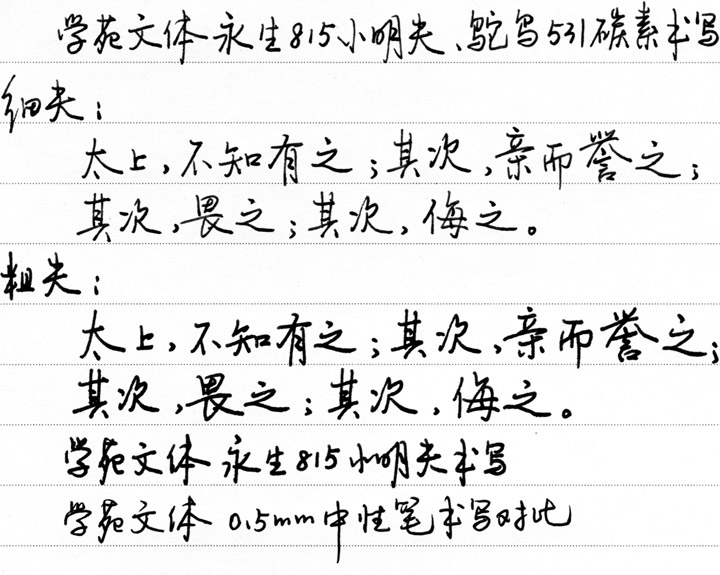 学苑文体 永生815小明尖、鸵鸟531碳素书写
细尖：
太上，不知有之；其次，亲而誉之；
其次，畏之；其次，侮之。
粗尖：
太上，不知有之；其次，亲而誉之；
其次，畏之；其次，侮之。
学苑文体 永生815小明尖书写
学苑文体 0.5mm中性笔书写对比